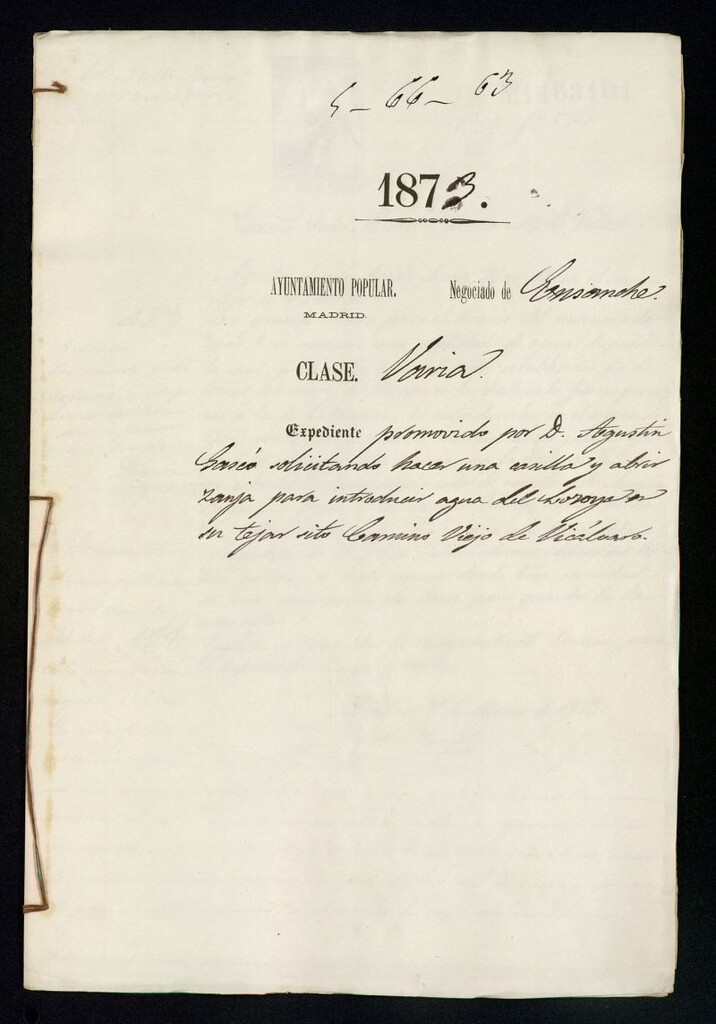 5 - 66 - 63
1873.
AYUNTAMIENTO POPULAR. Negociado de Ensanche.
MADRID.
CLASE. Varia.
Expediente promovido por D. Agustin
Gascó solicitando hacer una casilla y abrir
zanja para introducir agua del Lozoya en
su tejar sito Camino Viejo de Vicálvaro.